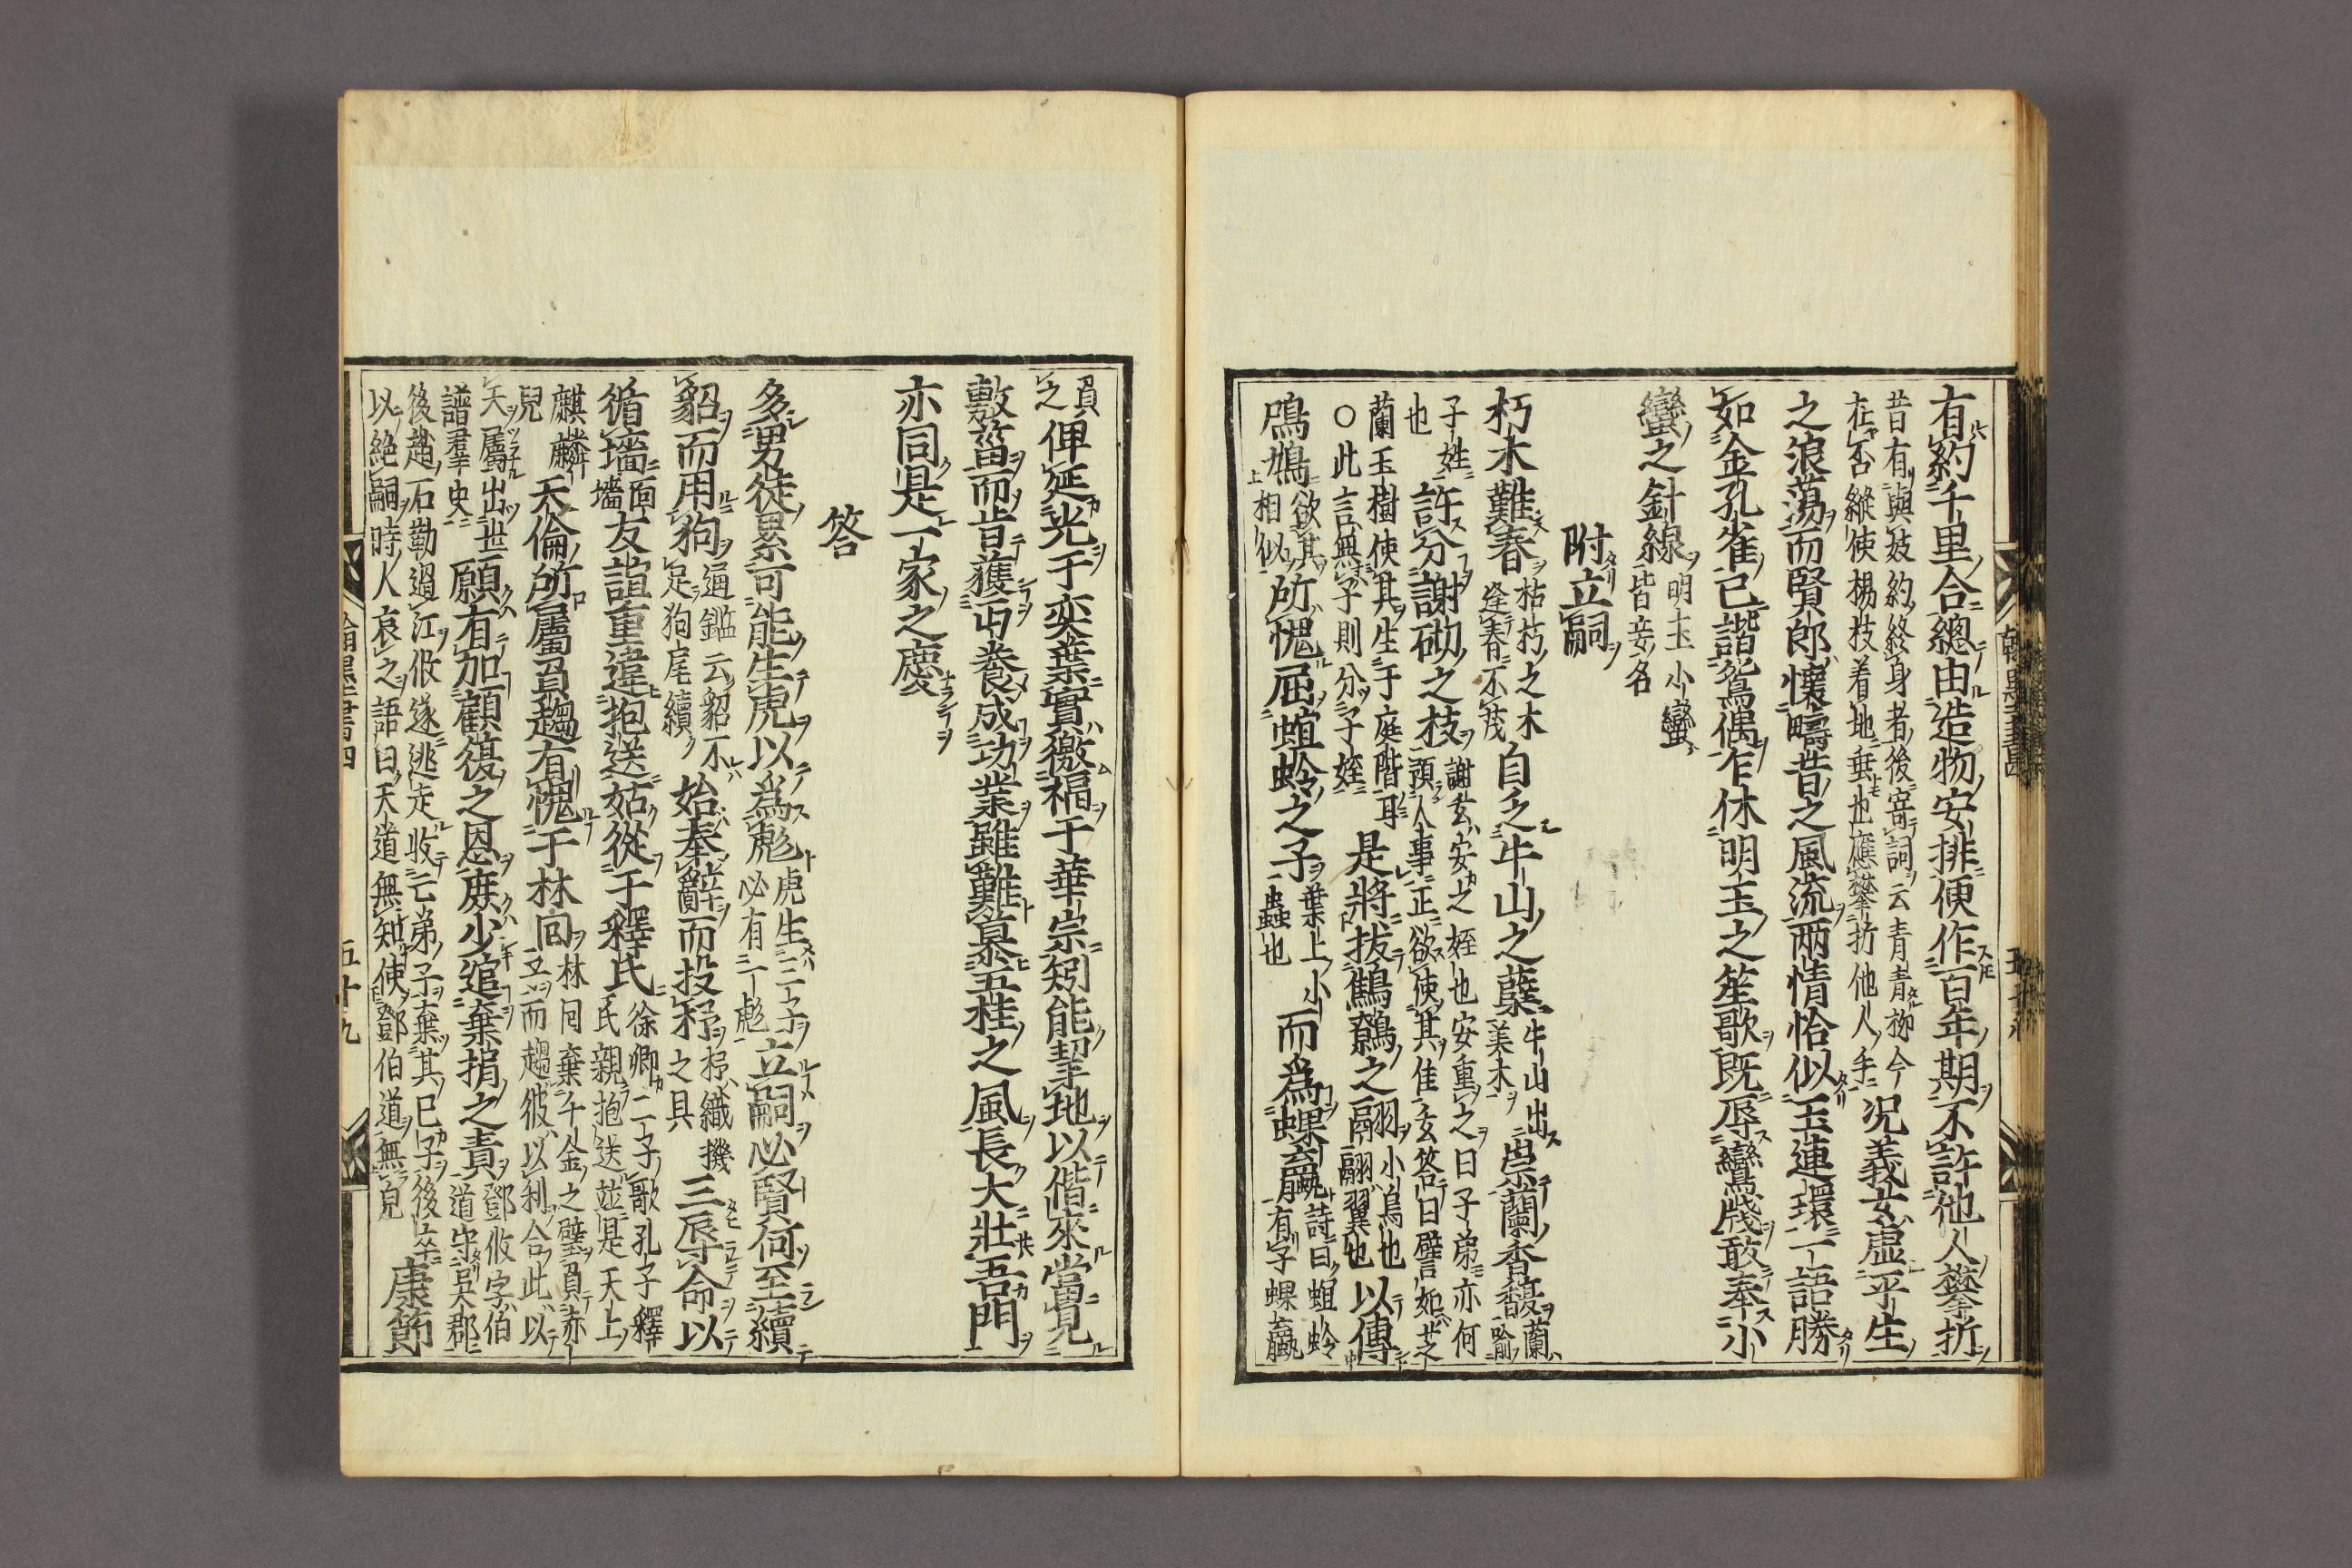 有約千里合總由造物安排便作百年期不許他人攀折
昔有與妓約終身者後寄詞云青青柳今
在否縱使楊枝着地垂也應攀折他人手
況義女虛平生
之浪蕩而賢郎懷疇昔之風流兩情恰似玉連環一語勝
如金孔雀已諧鴛偶乍休明玉之笙歌既辱鸞牋敢奉小
蠻之針線
明玉小蠻
皆妾名
附立嗣
朽木難春
枯朽之木
逢春不茂
自乏牛山之蘖
牛山出
美木
崇蘭香馥
蘭
喻
子姓
也
許分謝砌之枝
謝玄安之姪也安重之曰子弟亦何
預人事正欲使其佳玄答曰譬如芝
蘭玉樹使其生于庭階耳
○此言無子則分子姪
是將拔鷦鷯之翮
小鳥也
翮翼也
以傳
鳴鳩
欲其
相似
所愧屈蝗蛉之子
葉上小
蟲也
而為蜾蠃
詩曰蝗蛉
有子蜾蠃
負
之
俾延光于奕葉實徼福于華宗矧能挈地以偕來當見
敷菑而肯獲丐養成功業雖難慕五桂之風長大壯吾門
亦同是一家之慶
答
多男徒累可能生虎以為彪
虎生三子
必有一彪
立嗣必賢何至續
貂而用狗
通鑑云貂不
足狗尾續
始奉辭而投杼
杼織機
之具
三辱命以
循墻
面
墻
友誼重違抱送姑從于釋氏
徐卿二子歌孔子釋
氏親抱送並是天上
麒麟
兒
天倫所屬負趨有愧于林回
林回棄千金之璧負赤
子而趨彼以利合此以
天屬出世
譜羣史
願有加顧復之恩庶少逭棄捐之責
鄧攸字伯
道守吳郡
後趙石勒過江攸遂逃走收亡弟子棄其己子後卒
以絕嗣時人哀之語曰天道無知使鄧伯道無兒
康節
五十九